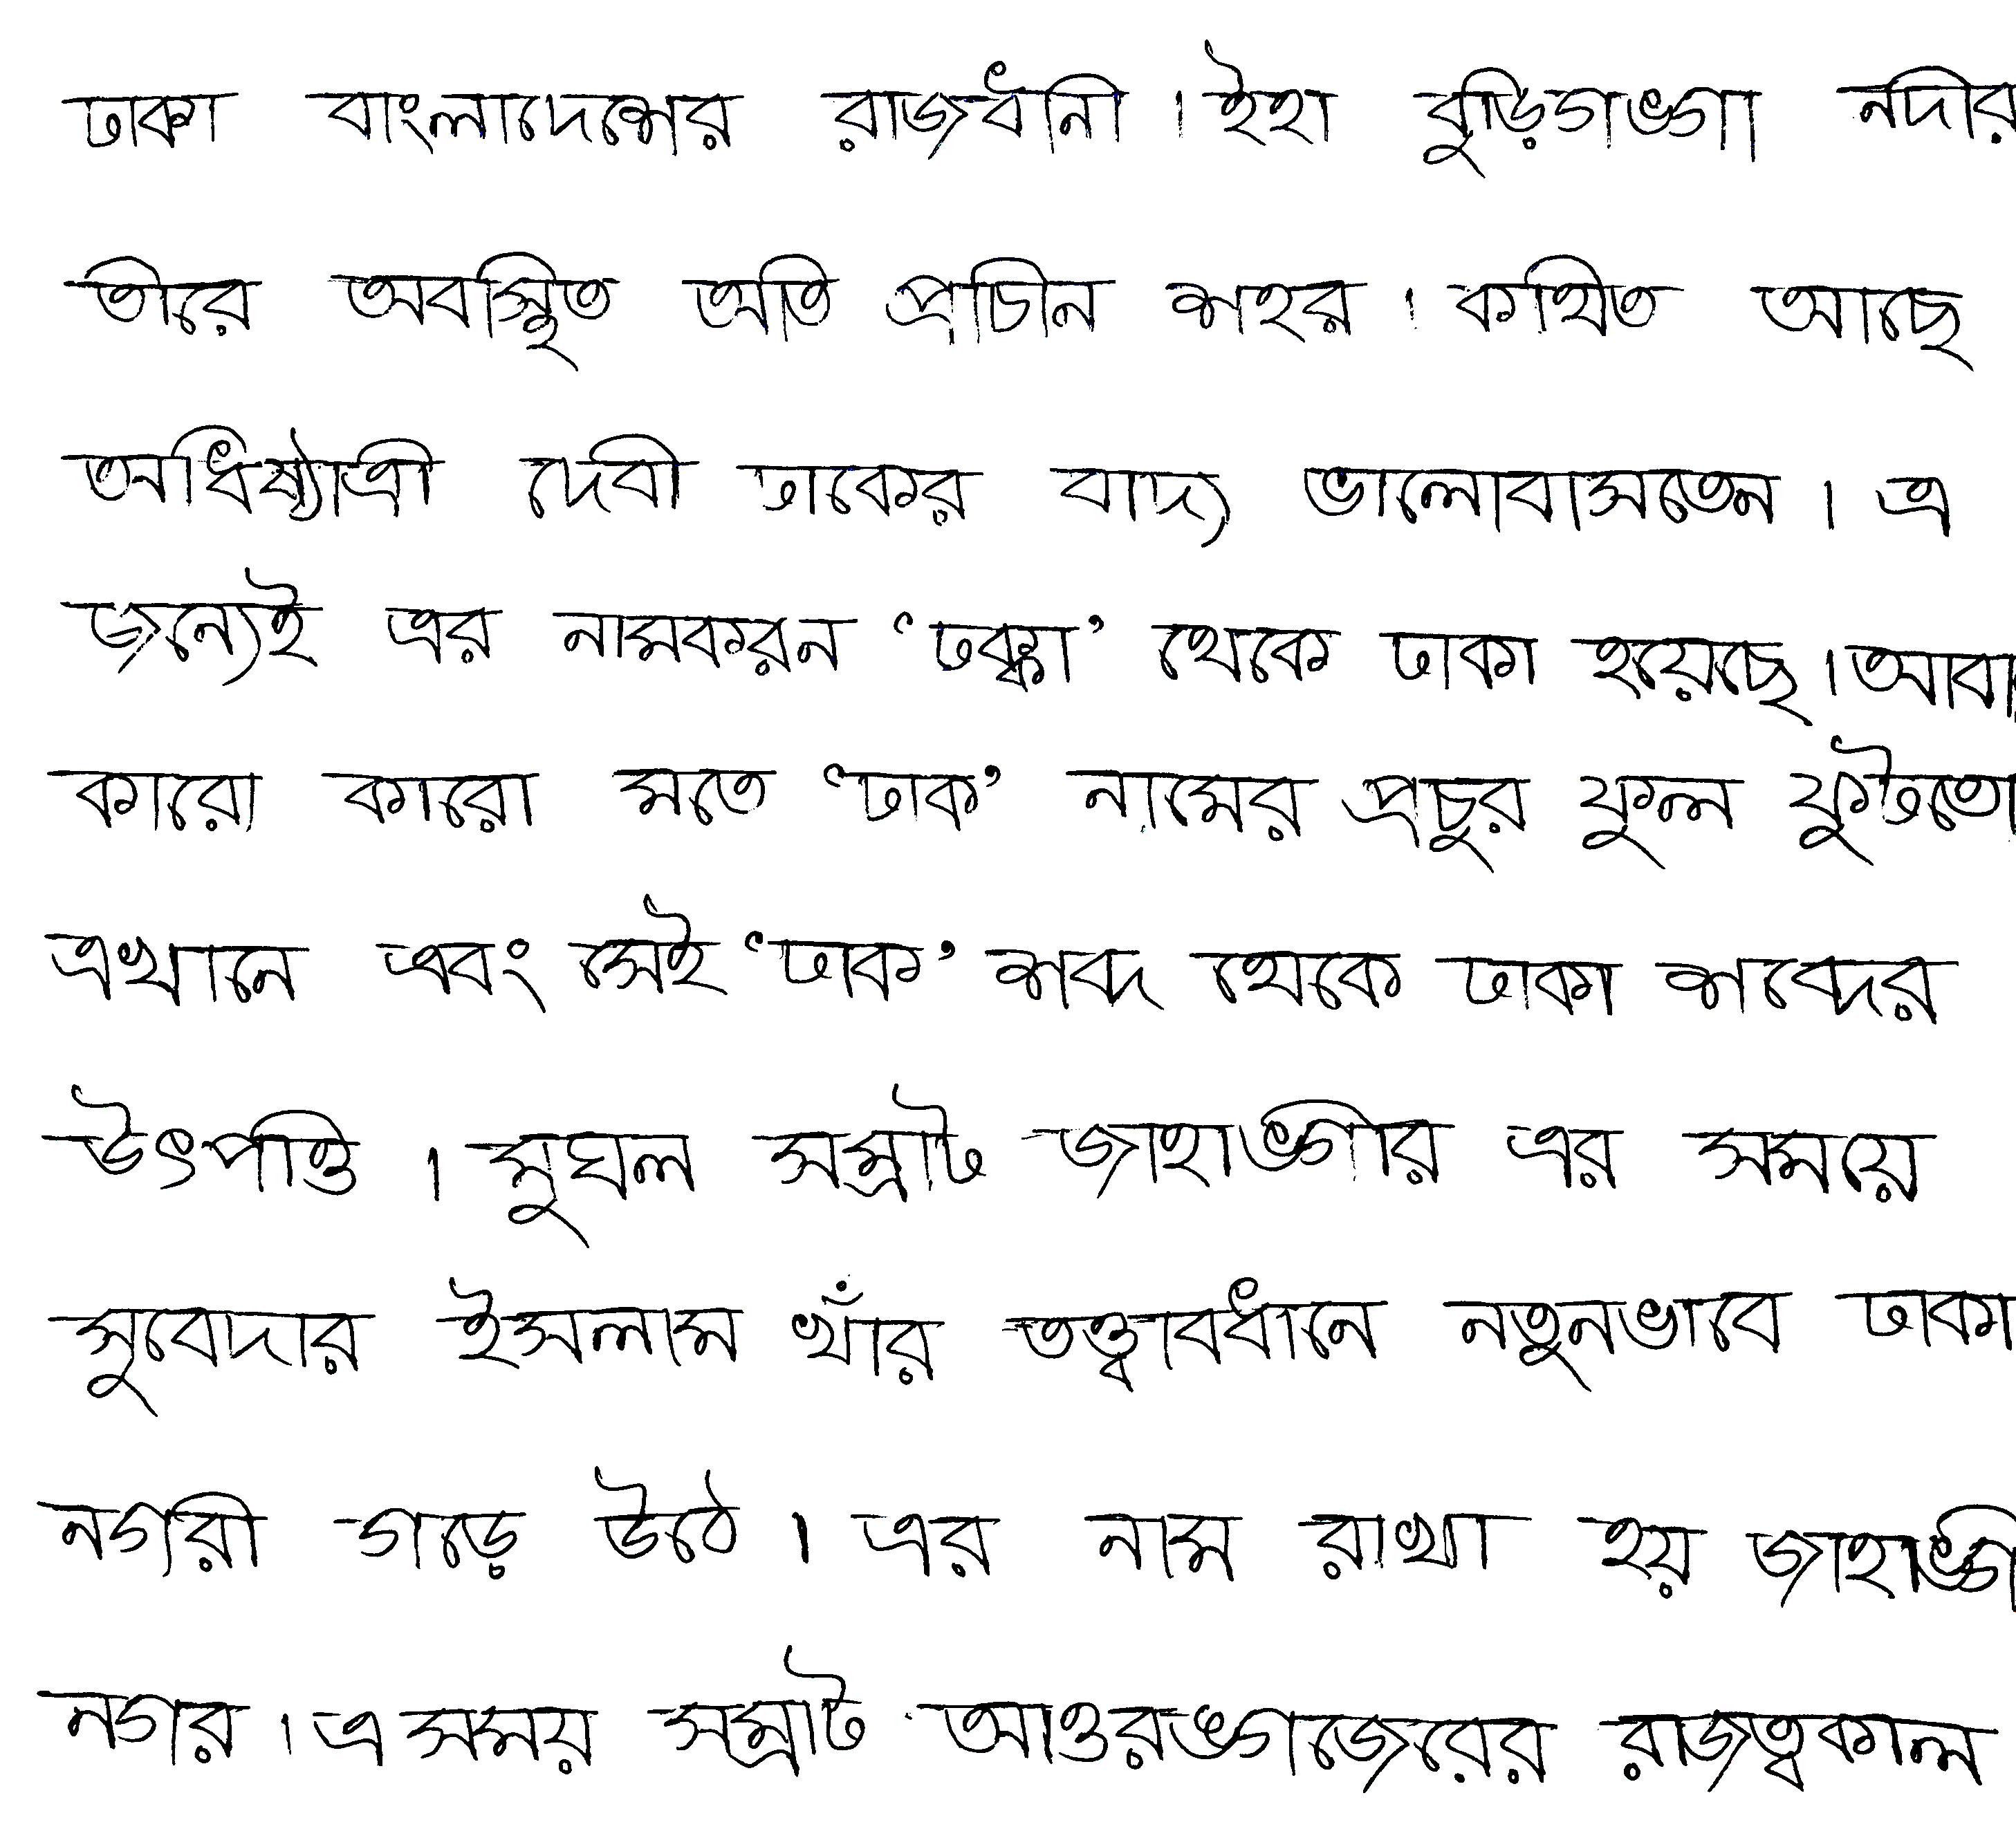 ঢাকা বাংলাদেশের রাজধানী। ইহা বুড়িগঙ্গা নদীর
তীরে অবস্থিত অতি প্রাচীন শহর। কথিত আছে
অধিষ্ঠাত্রী দেবী ঢাকের বাদ্য ভালোবাসতেন। এ
জন্যেই এর নামকরন ‘ঢক্কা’ থেকে ঢাকা হয়েছে। আবা
কারো কারো মতে ‘ঢাক’ নামের প্রচুর ফুল ফুটতো
এখানে এবং সেই ‘ঢাক’ শব্দ থেকে ঢাকা শব্দের
উৎপত্তি। মুঘল সম্রাট জাহাঙ্গীর এর সময়ে
সুবেদার ইসলাম খাঁর তত্ত্বাবধানে নতুনভাবে ঢাকা
নগরী গড়ে উঠে। এর নাম রাখা হয় জাহাঙ্গী
নগর। এ সময় সম্রাট আওরঙ্গজেবের রাজত্বকাল